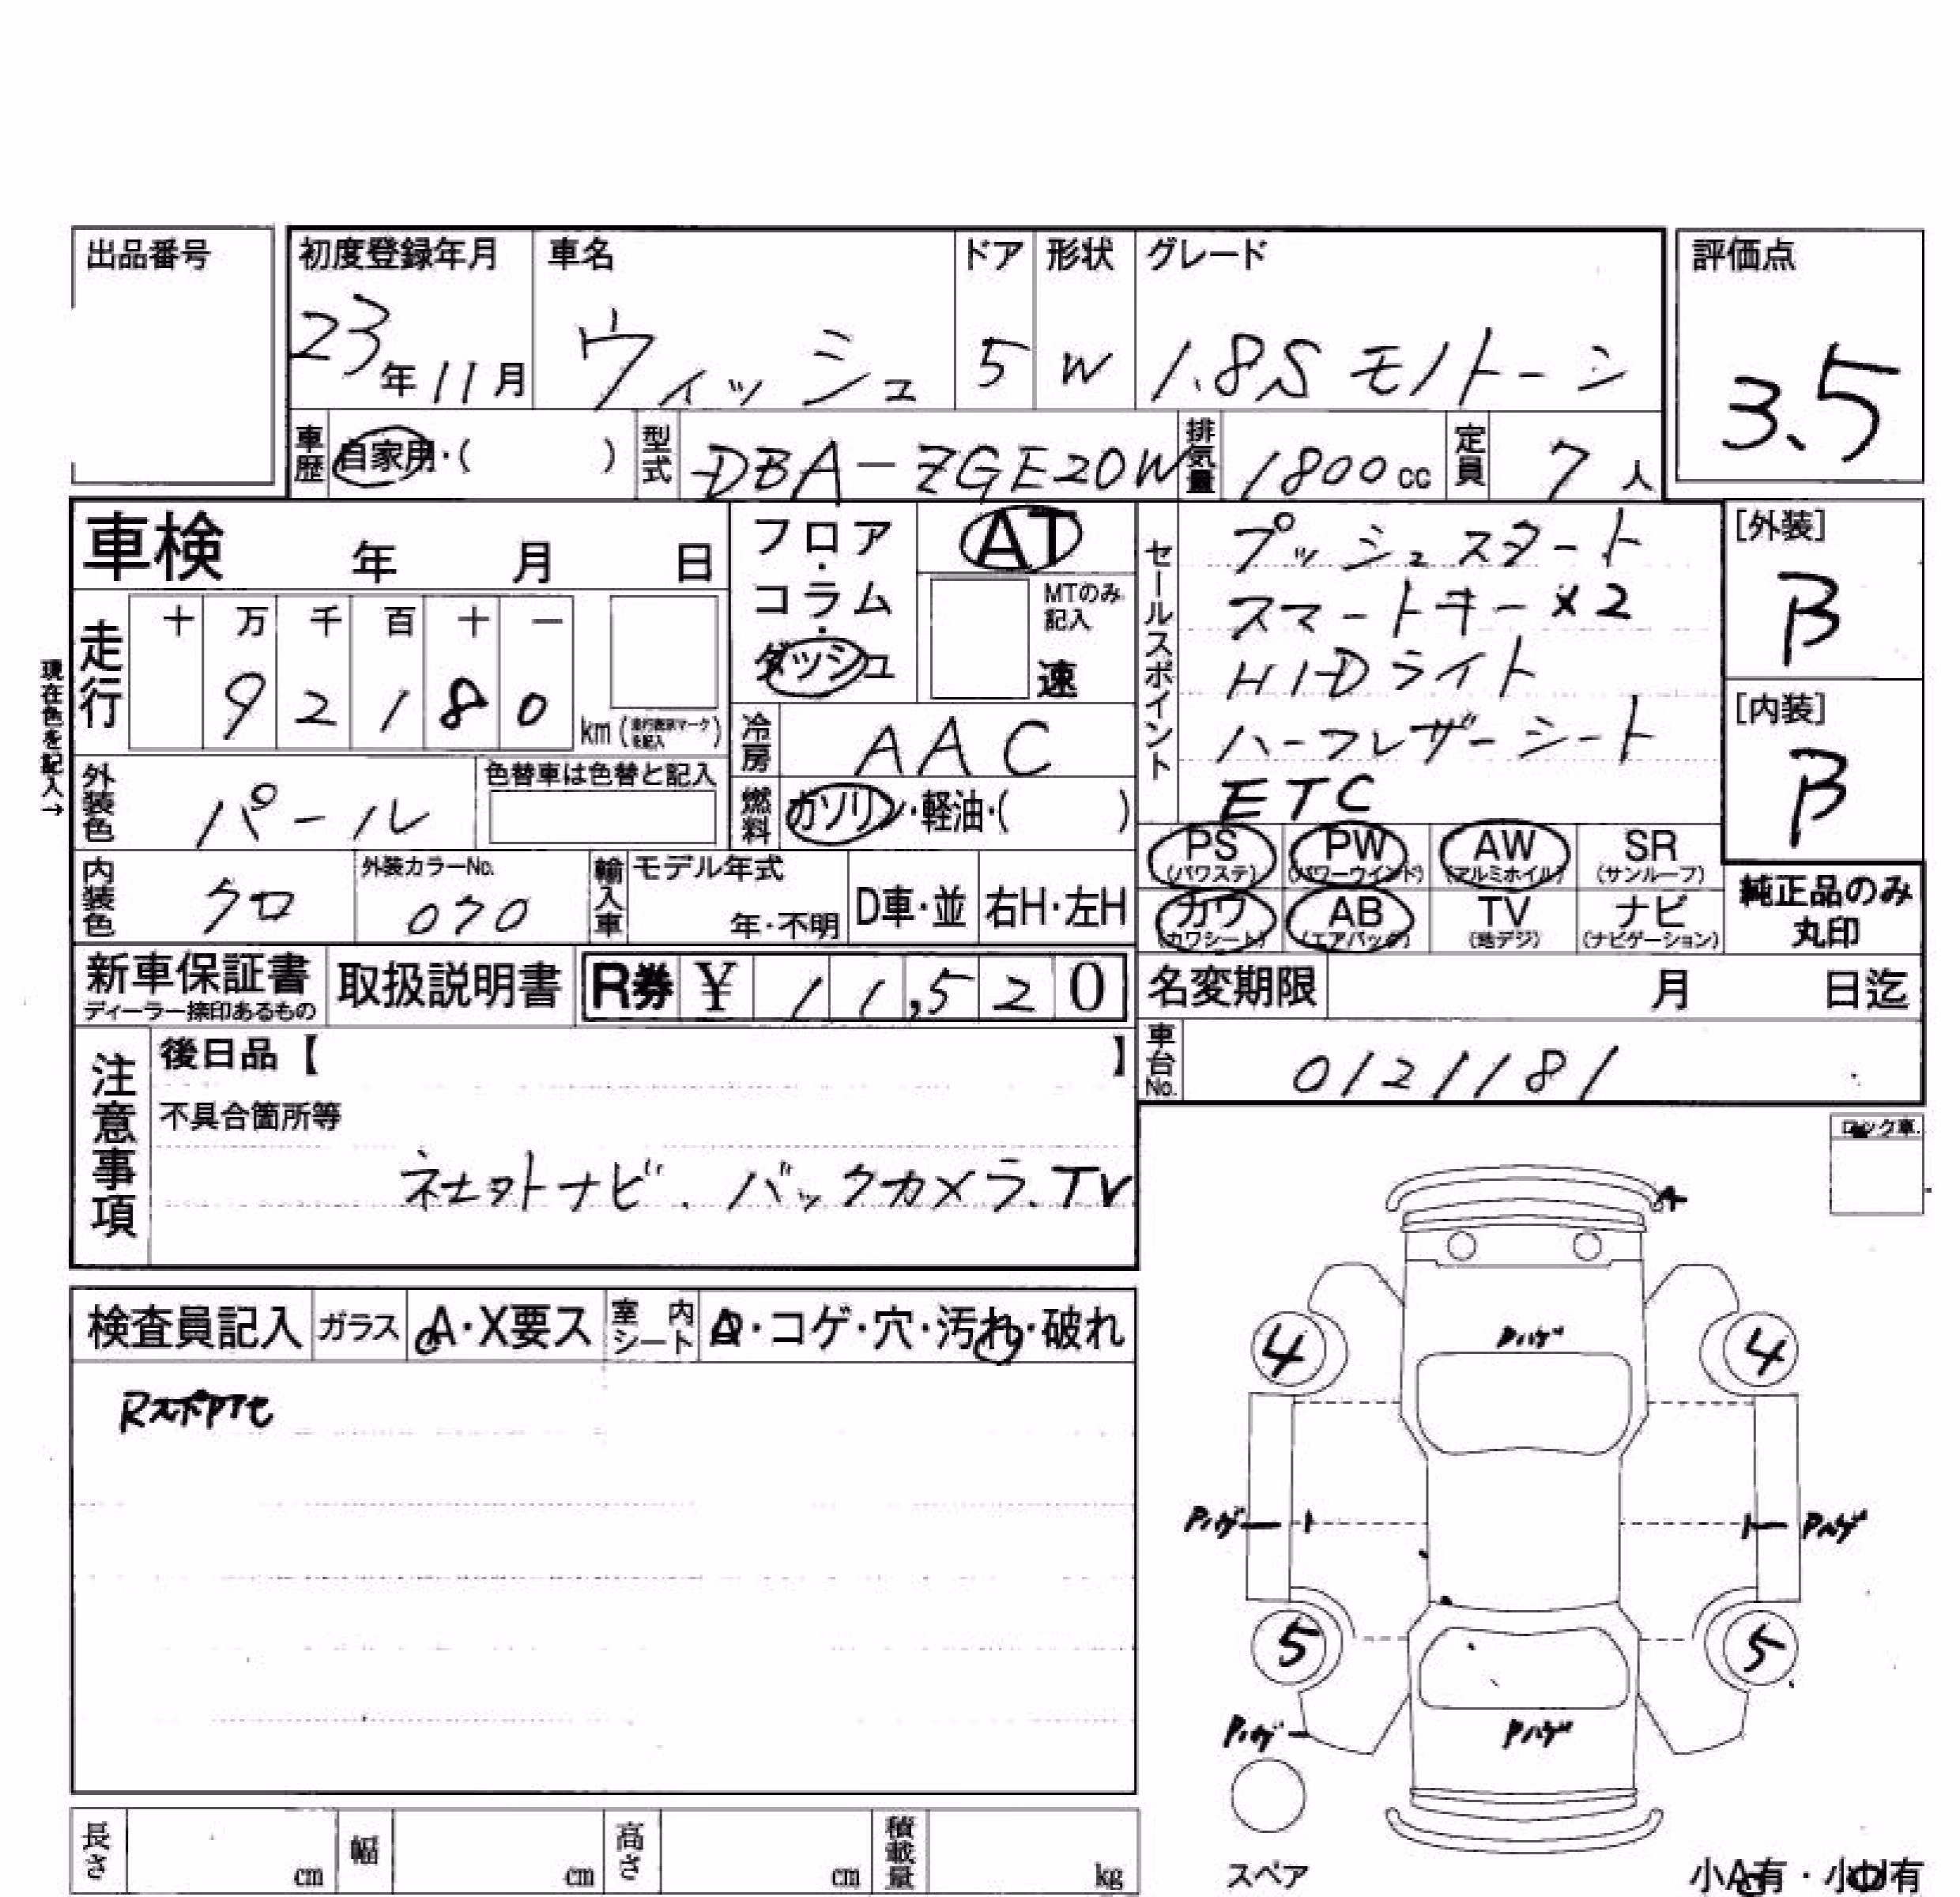 出品番号
初度登録年月 車名 ドア 形状 グレード 評価点
23年11月 ウィッシュ 5 W 1.8S モノトーン 3.5
車歴 自家用・( ) 型式 DBA-ZGE20W 排気量 1800cc 定員 7人
車検 年 月 日
フロア・コラム・ダッシュ
AT
MTのみ記入
速
セールスポイント
プッシュスタート
スマートキー×2
HIDライト
ハーフレザーシート
ETC
[外装]
B
[内装]
B
現在色を記入→
走行 十 万 千 百 十 一
9 2 1 8 0 km
冷房 AAC
外装色 パール 色替車は色替と記入
燃料 ガソリン・軽油・( )
PS (パワステ) PW (パワーウインド) AW (アルミホイル) SR (サンルーフ)
カワ (カワシート) AB (エアバック) TV (地デジ) ナビ (ナビゲーション)
純正品のみ丸印
内装色 クロ 外装カラーNo. 070 輸入車 モデル年式 年・不明 D車・並 右H・左H
新車保証書 取扱説明書 R券 ¥ 11,520
ディーラー捺印あるもの
名変期限 月 日迄
車台No. 0121181
注意事項
後日品【 】
不具合箇所等
ナビ. バックカメラ.TV
ロック車
検査員記入 ガラス A・X要ス 室内シート ・コゲ・穴・汚れ・破れ
A
Pハゲ
4 4
Pハゲ Pハゲ
5 5
Pハゲ Pハゲ
スペア
小A有・小U有
長さ cm 幅 cm 高さ cm 積載量 kg